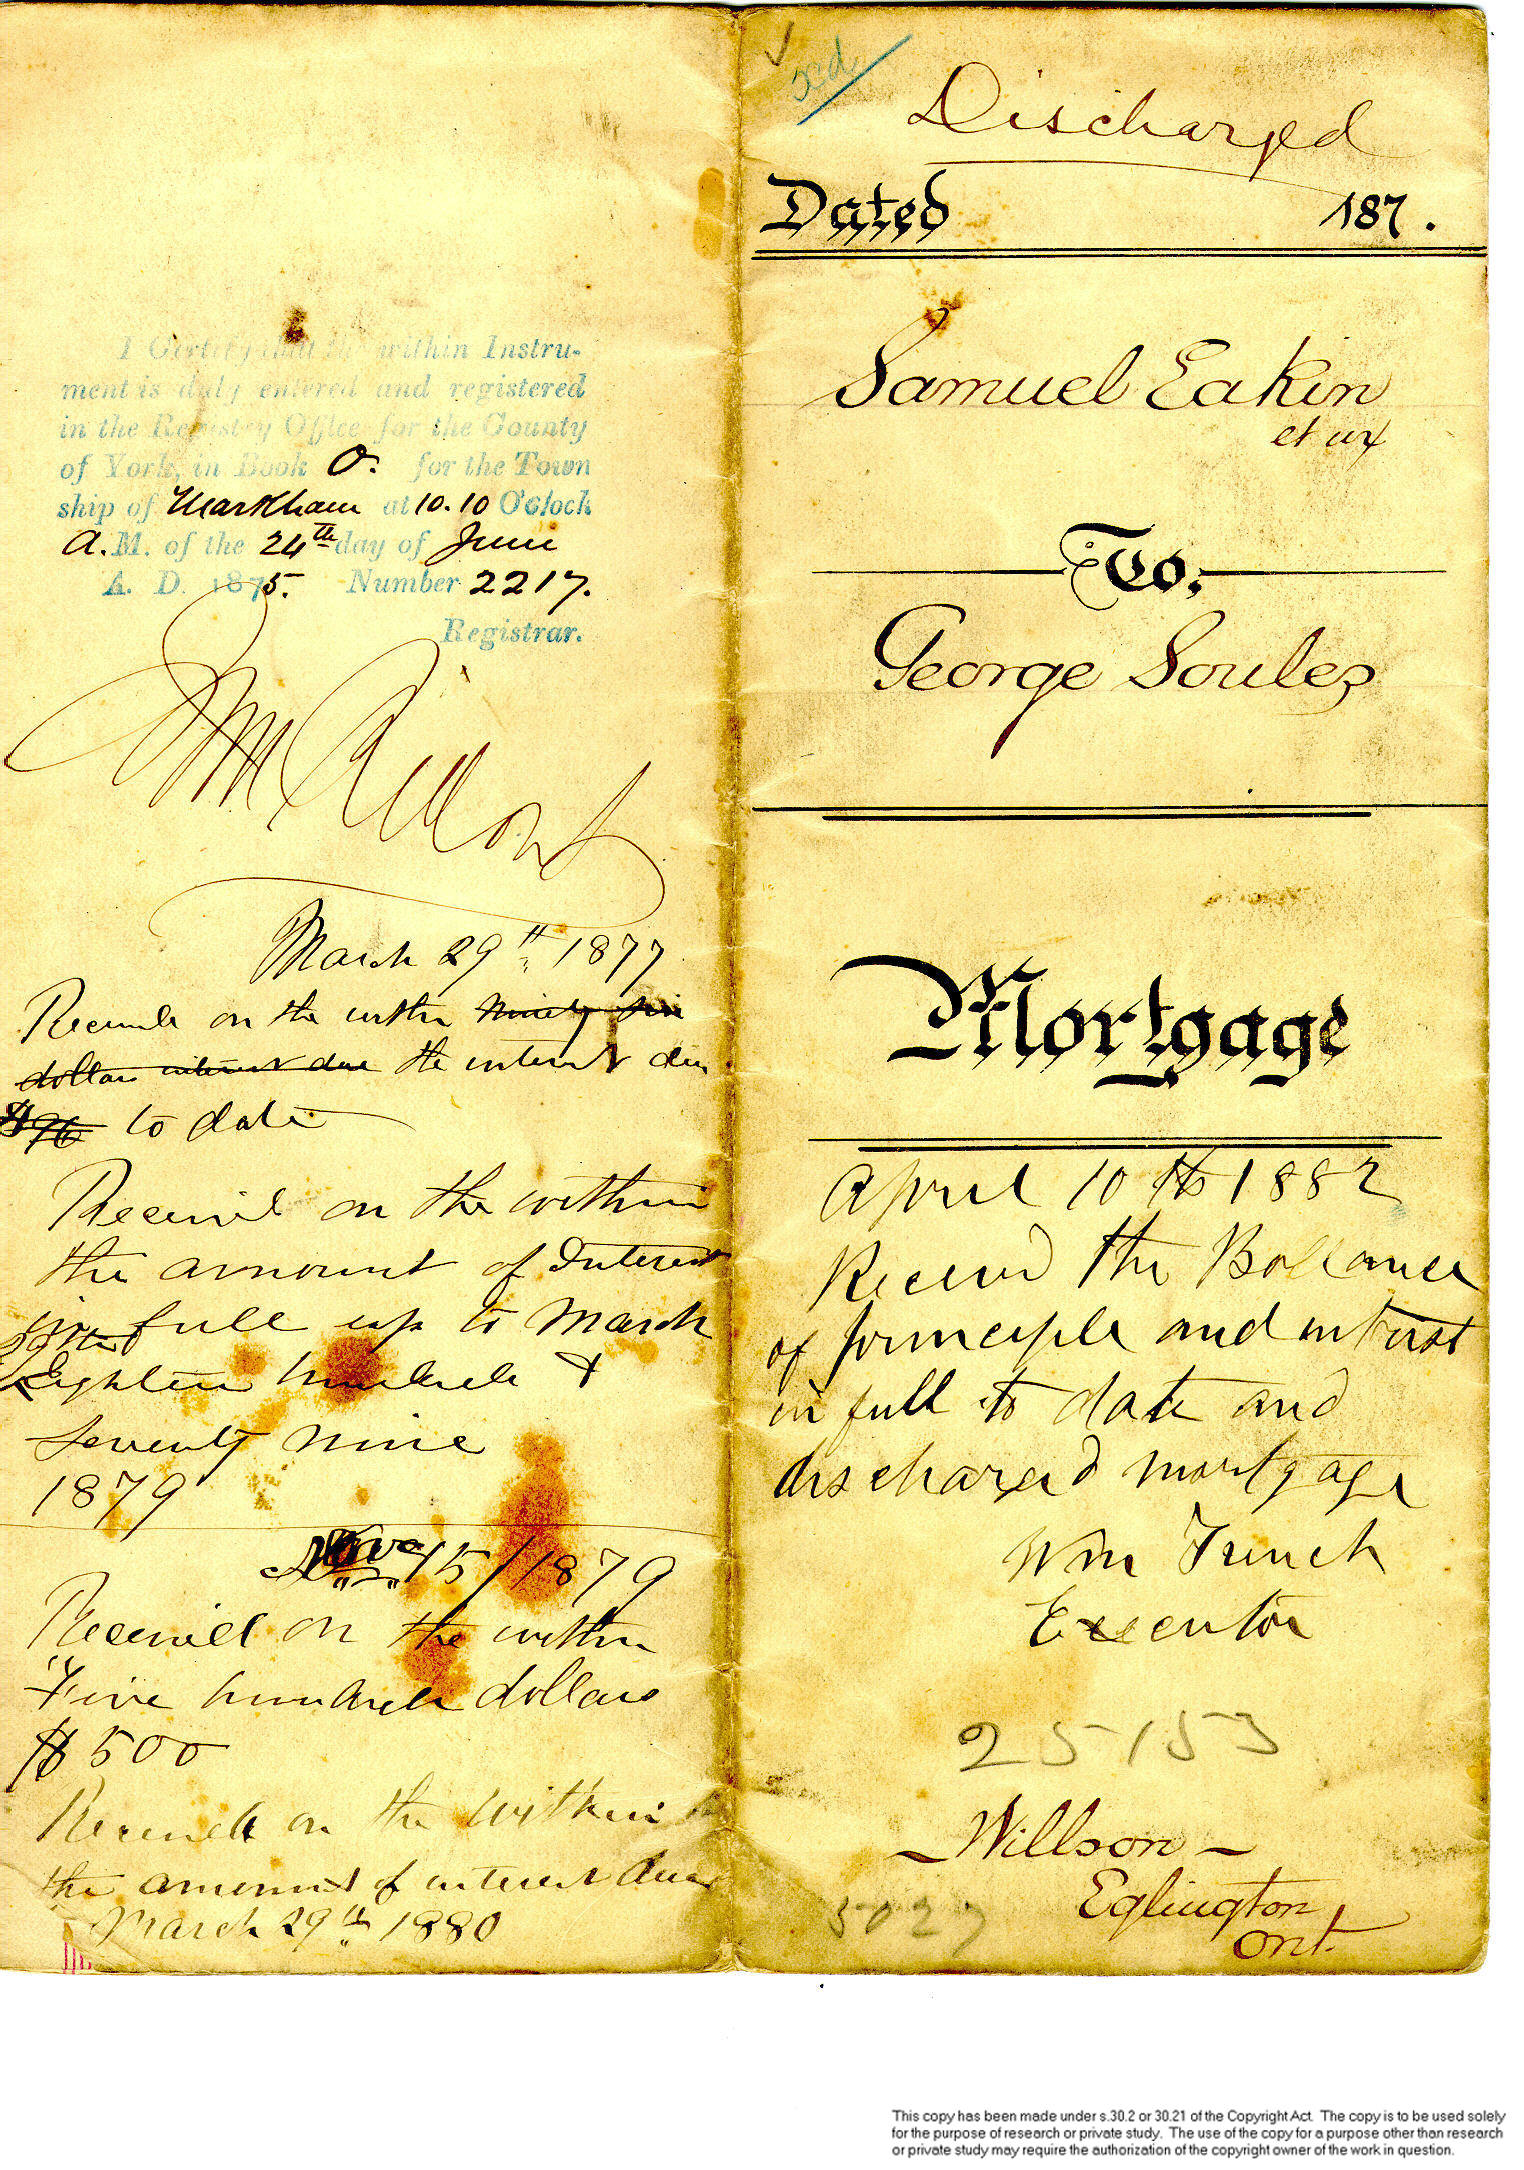 I Certify that the within Instru-
ment is duly entered and registered
in the Registry Office for the County
of York, in Book O. for the Town
ship of Markham at 10.10 O'Clock
A.M. of the 24th day of June
A. D. 1875. Number 2217.
Registrar.
March 29th 1877
Received on the within ninety six
dollars interest due the interest due
$96 to date
Received on the within
the amount of Interest
in full up to March
Eighteen hundred &
Seventy nine
1879
Nov 15/1879
Received on the within
Five hundred dollars
$500
Received on the within
the amount of interest due
March 29th 1880
Discharged
Dated 187 .
Samuel Eakin
et ux
To.
George Soules
Mortgage
April 10th 1882
Received the Ballance
of principle and intrest
in full to date and
discharged mortgage
Wm French
Executor
25153
Willson
Eglington
Ont.
5027
This copy has been made under s.30.2 or 30.21 of the Copyright Act. The copy is to be used solely
for the purpose of research or private study. The use of the copy for a purpose other than research
or private study may require the authorization of the copyright owner of the work in question.